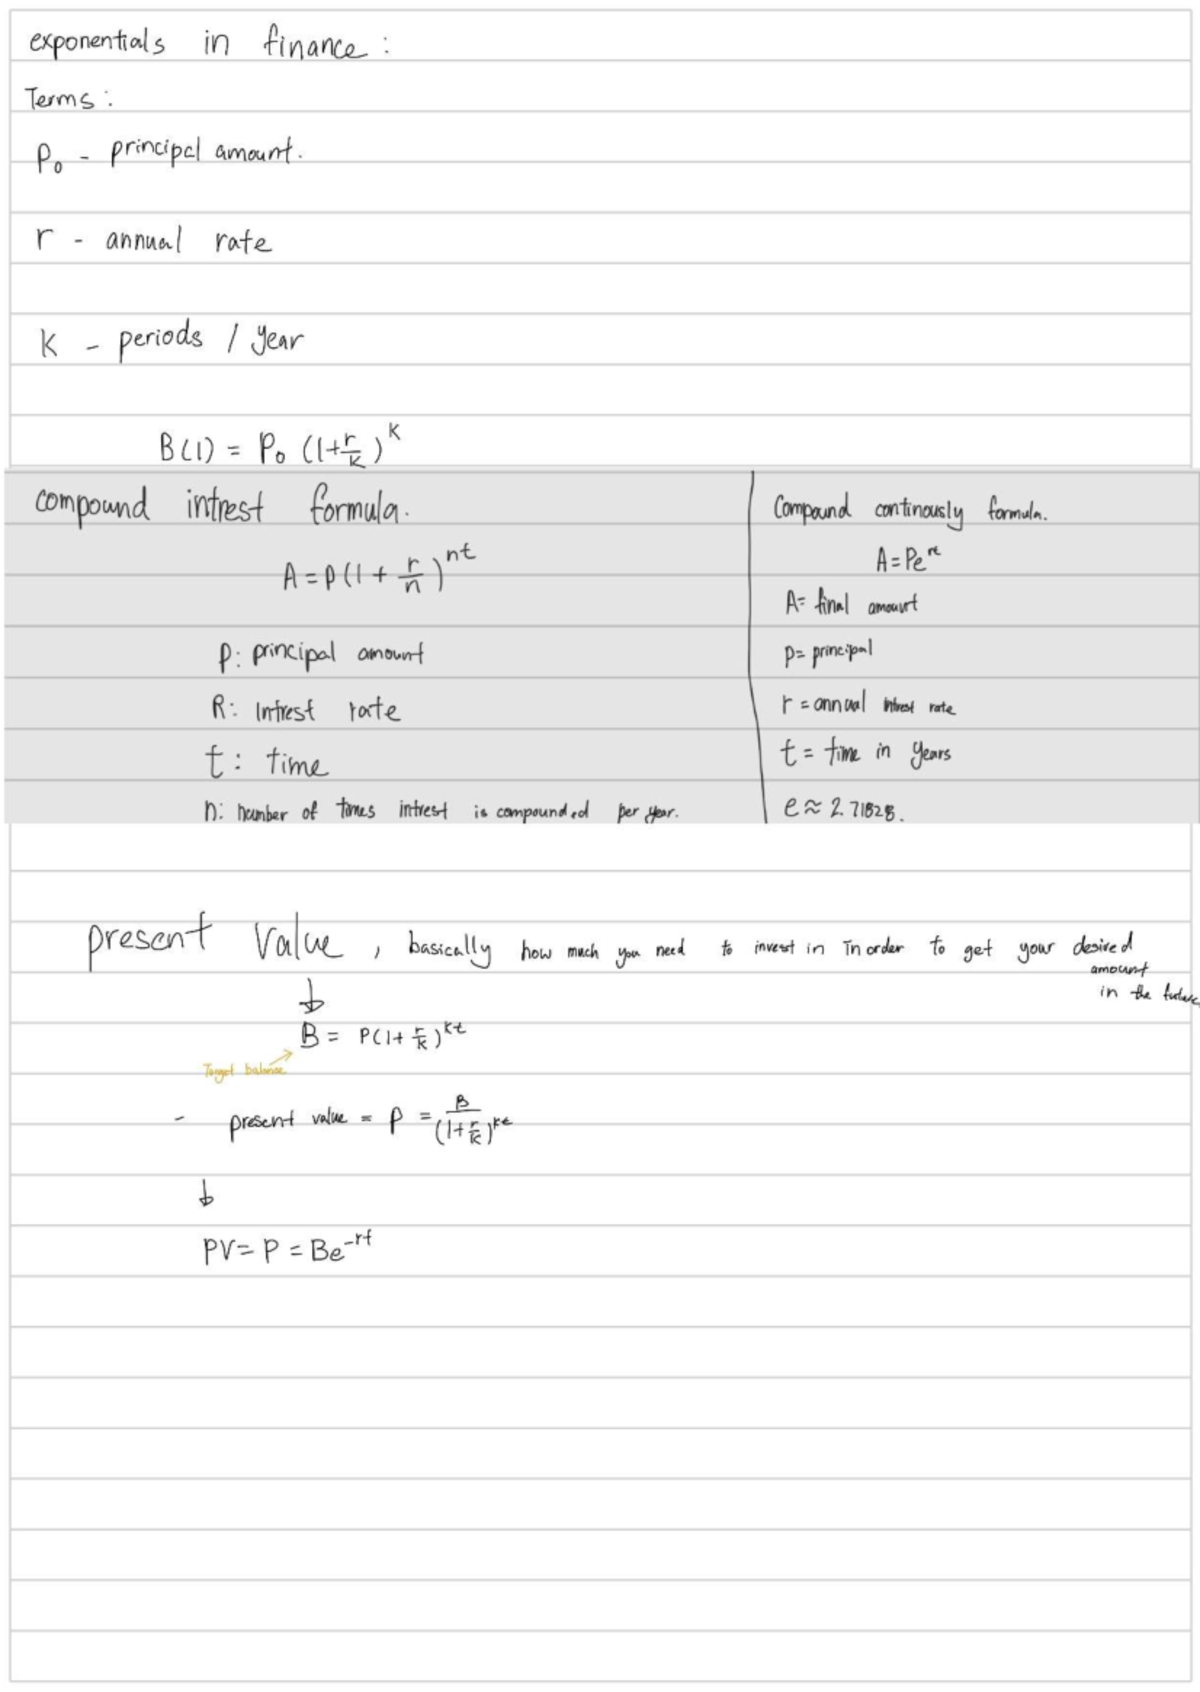 exponentials in finance :
Terms :
P₀ - principal amount.
r - annual rate
K - periods / year
B(1) = P₀ (1+r/k)^K
compound intrest formula.
A = P(1 + r/n)^nt
P: principal amount
R: Intrest rate
t: time
n: number of times intrest is compounded per year.
Compound continously formula.
A=Pe^rt
A= final amount
p= principal
r = annual intrest rate
t = time in years
e ≈ 2.71828.
present Value , basically how much you need to invest in in order to get your desired
amount
in the future
↓
B = P(1+ r/k)^kt
Target balance
- present value = P = B/(1+r/k)^kt
↓
PV= P = Be^-rt